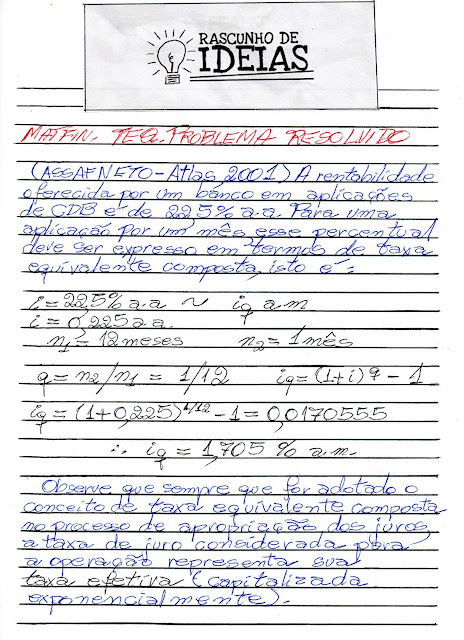 RASCUNHO DE
IDEIAS
MATFIN. TEQ. PROBLEMA RESOLVIDO
(ASSAF NETO - Atlas 2001) A rentabilidade
oferecida por um banco em aplicações
de CDB é de 22,5% a.a. Para uma
aplicação por um mês esse percentual
deve ser expresso em termos de taxa
equivalente composta, isto é:
i = 22,5% a.a ~ iq a.m
i = 0,225 a.a.
n1 = 12 meses n2 = 1 mês
q = n2/n1 = 1/12 iq = (1+i)^q - 1
iq = (1+0,225)^1/12 - 1 = 0,0170555
∴ iq = 1,705 % a.m.
Observe que sempre que for adotado o
conceito de taxa equivalente composta
no processo de apropriação dos juros,
a taxa de juro considerada para
a operação representa sua
taxa efetiva (capitalizada
exponencialmente).